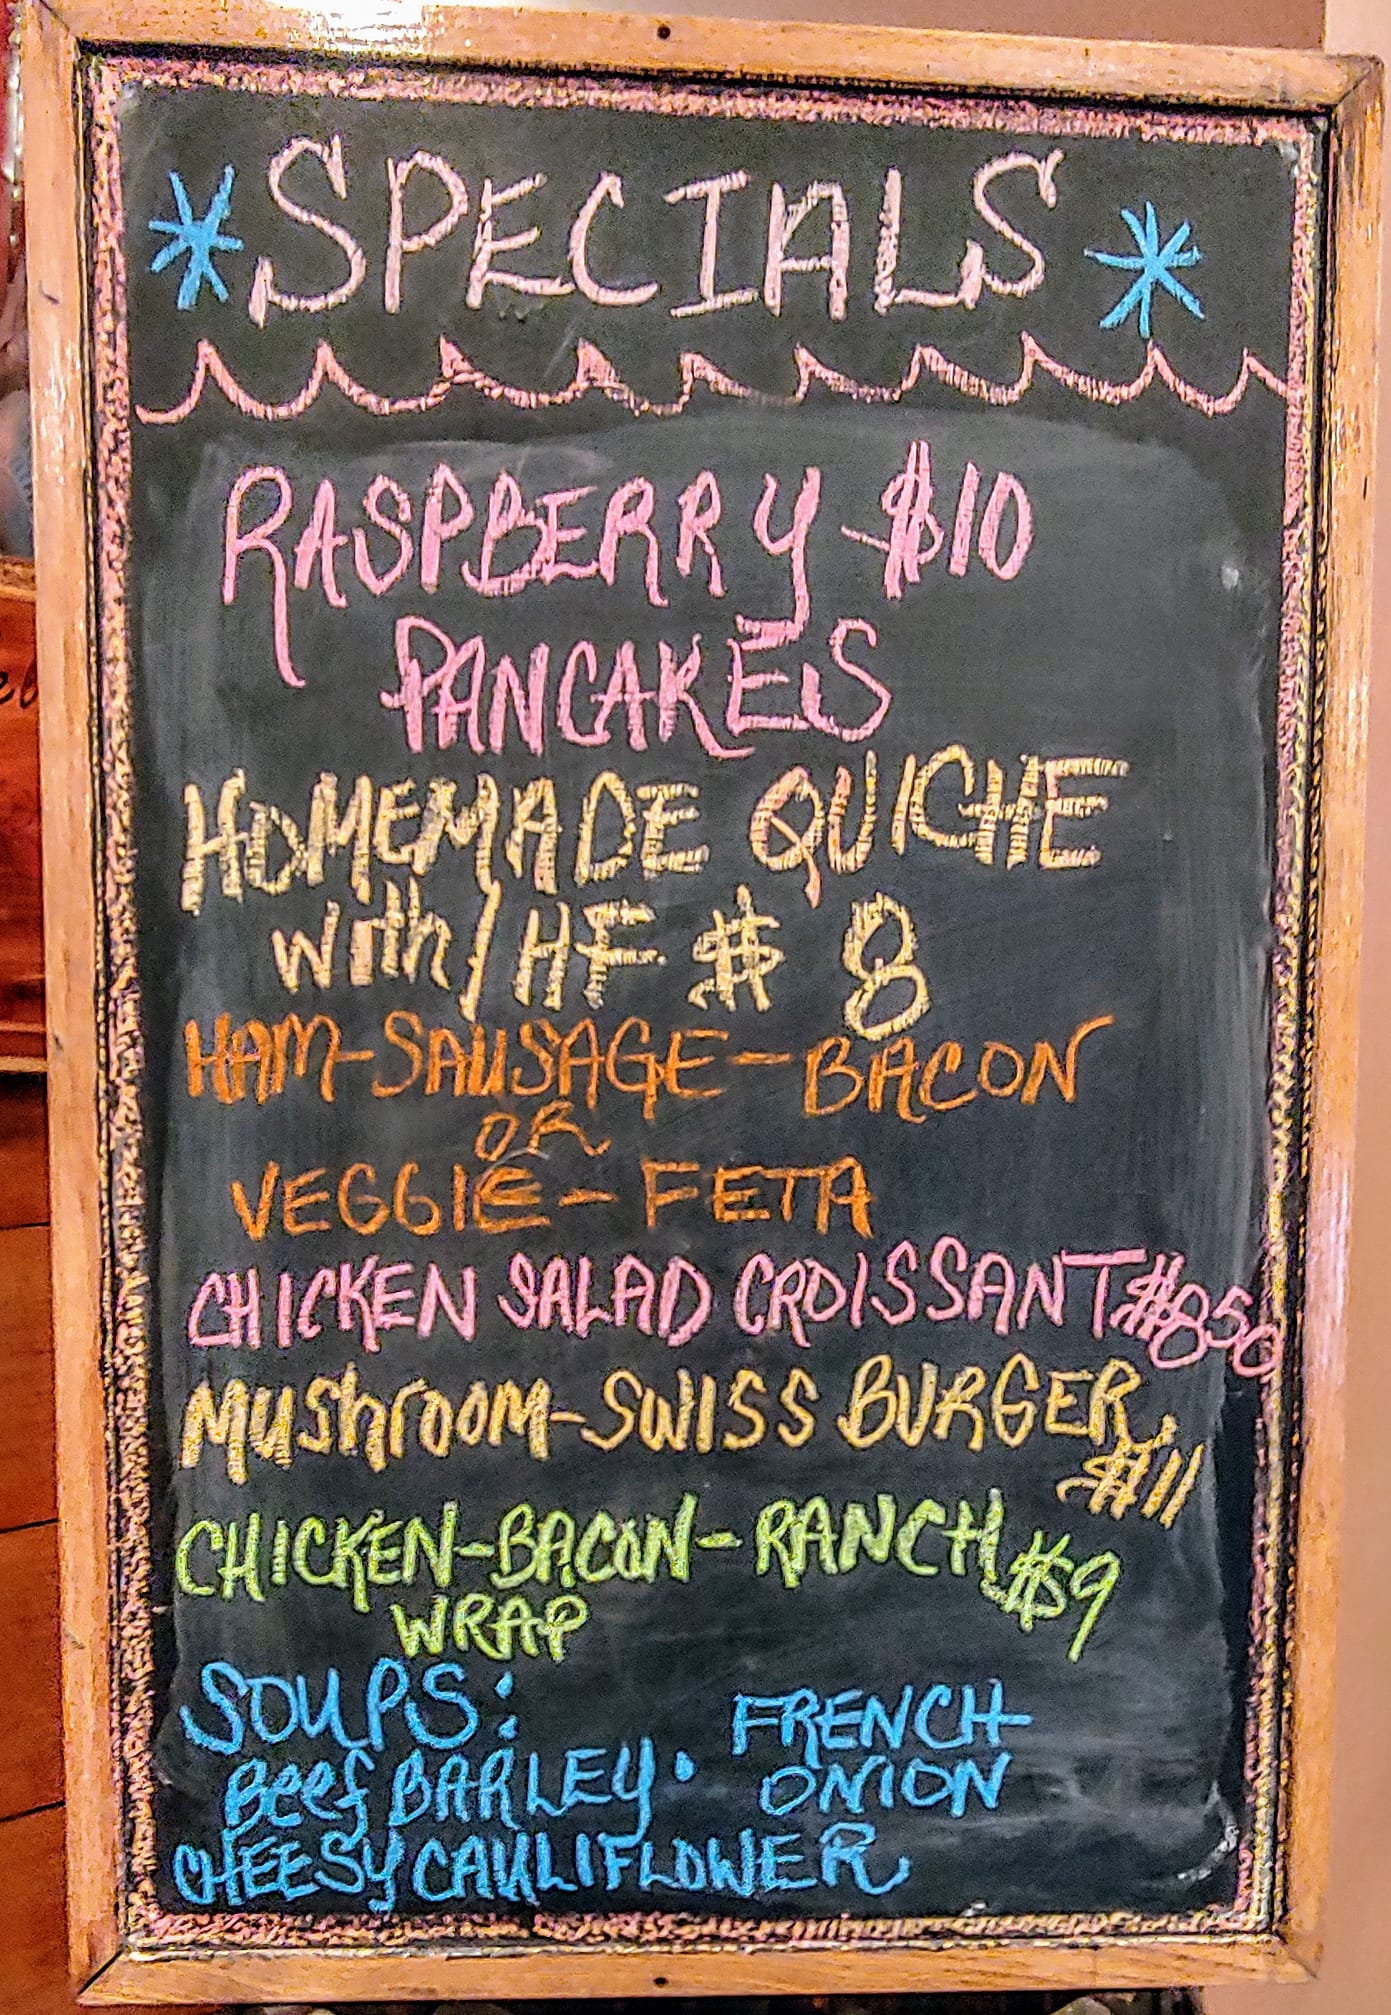 * SPECIALS *
RASPBERRY - $10
PANCAKES
HOMEMADE QUICHE
with/HF $ 8
HAM-SAUSAGE-BACON
OR
VEGGIE-FETA
CHICKEN SALAD CROISSANT $850
MUShrOOM-SWISS BURGER
$11
CHICKEN-BACON-RANCH $9
WRAP
SOUPS:
Beef BARLEY • FRENCH
ONION
CHEESY CAULIFLOWER